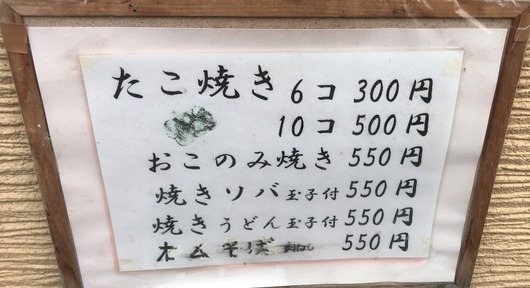 たこ焼き 6コ 300円
10コ 500円
おこのみ焼き 550円
焼きソバ 玉子付 550円
焼きうどん 玉子付 550円
オムそば 550円